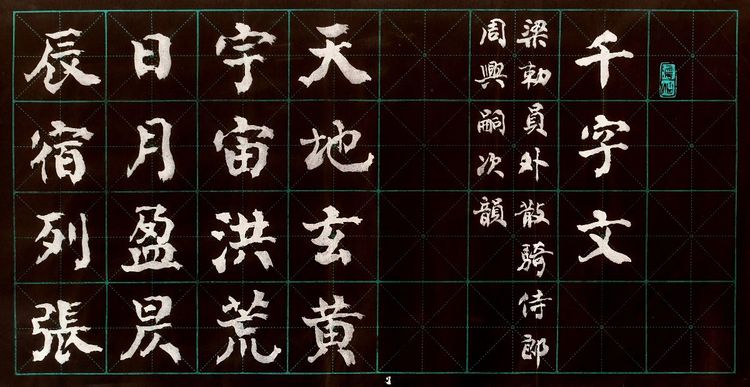 千字文
梁勅員外散騎侍郎
周興嗣次韻
天地玄黄
宇宙洪荒
日月盈昃
辰宿列張